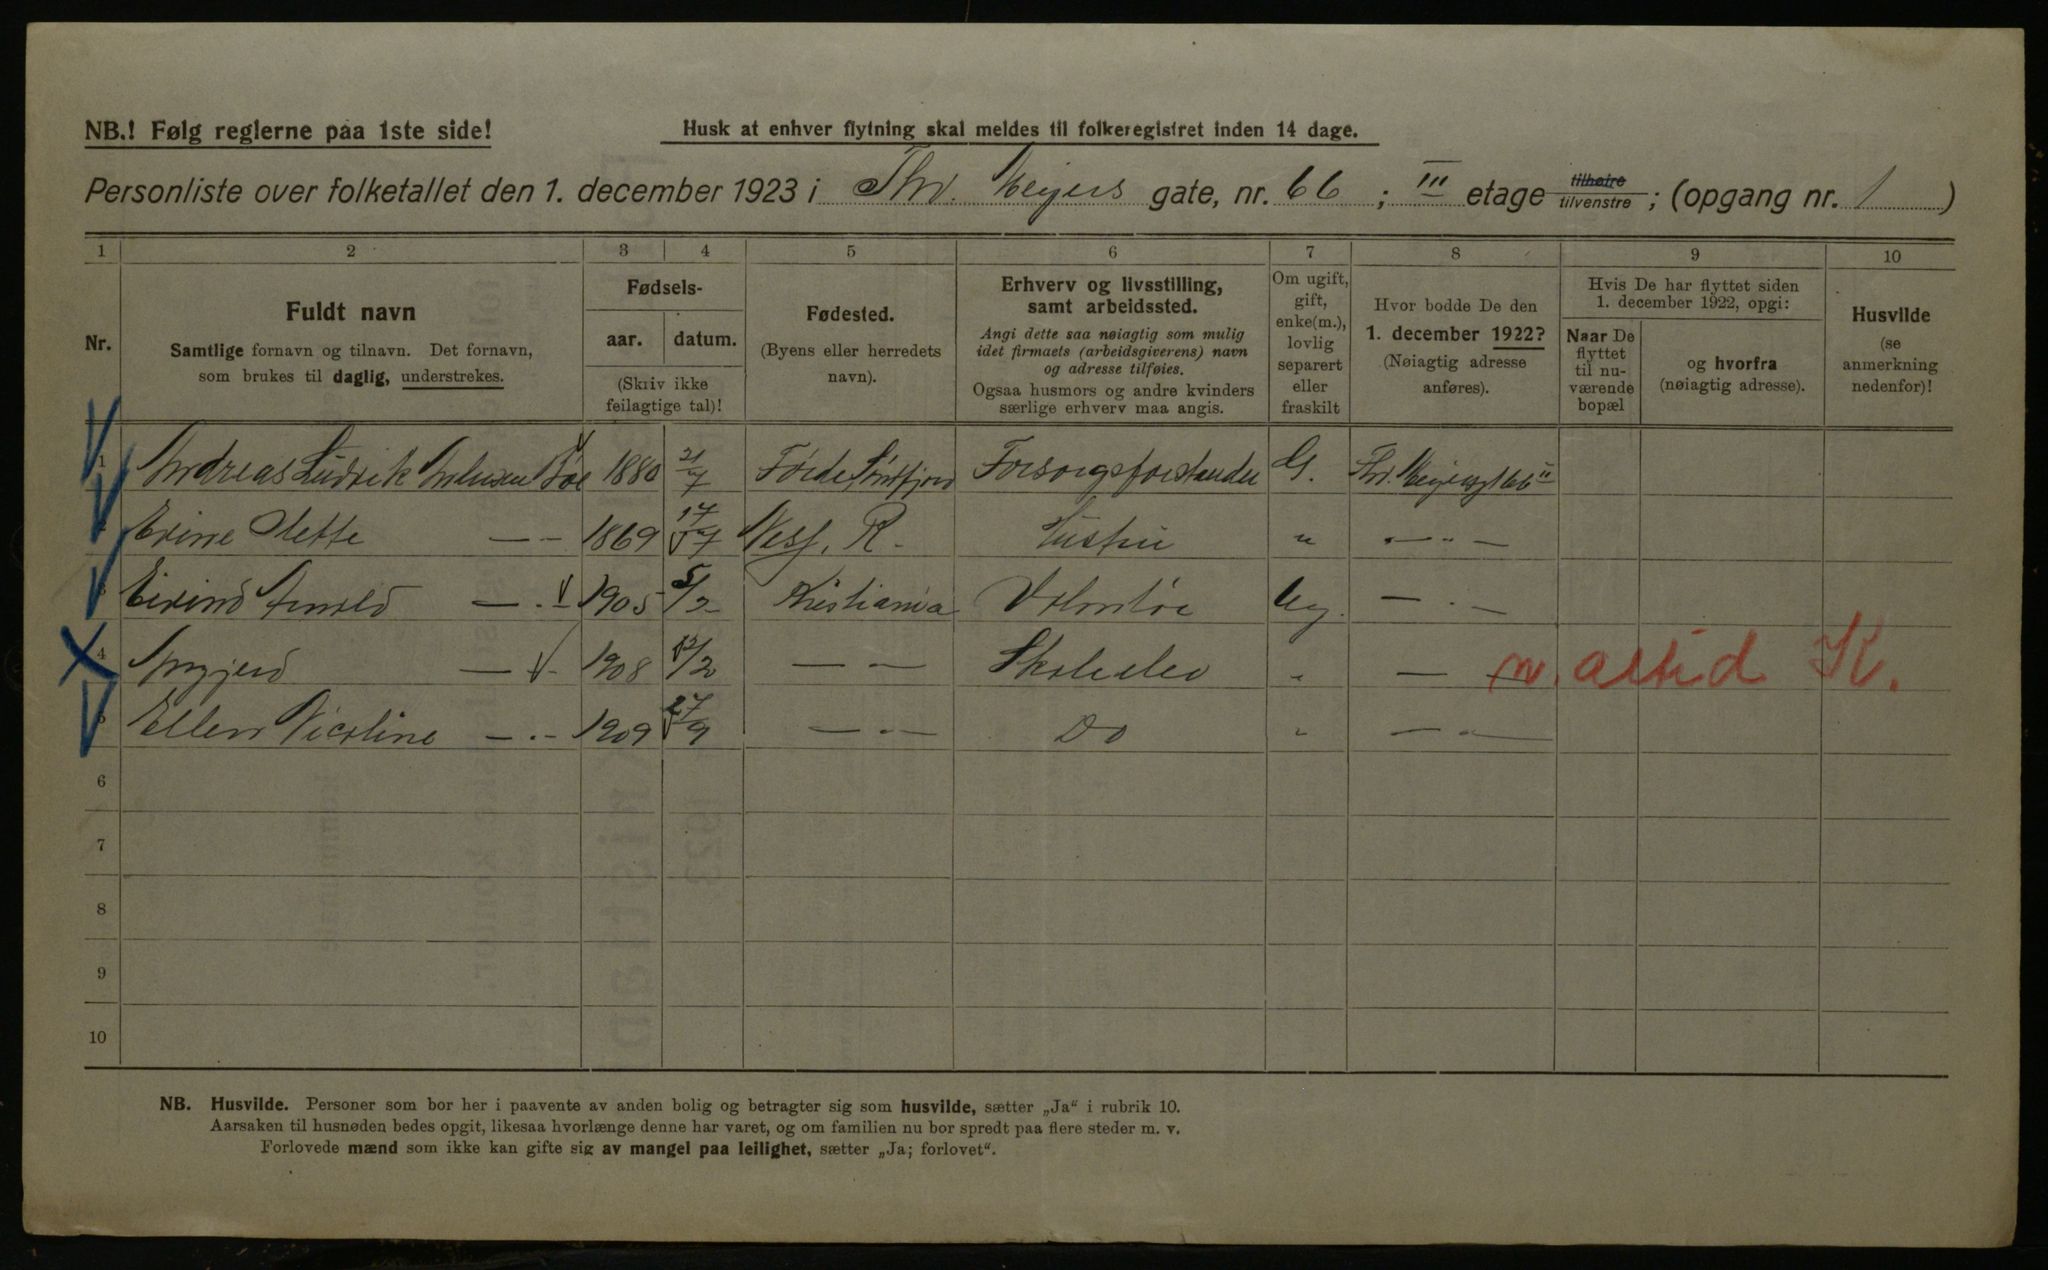 NB.! Følg reglerne paa 1ste side!
Husk at enhver flytning skal meldes til folkeregistret inden 14 dage.
Personliste over folketallet den 1. december 1923 i Thv. Meyers gate, nr. 66 ; III etage tilhøire tilvenstre ; (opgang nr. 1 )
1 2 3 4 5 6 7 8 9 10
Nr.
Fuldt navn
Samtlige fornavn og tilnavn. Det fornavn,
som brukes til daglig, understrekes.
Fødsels-
aar. datum.
(Skriv ikke
feilagtige tal)!
Fødested.
(Byens eller herredets
navn).
Erhverv og livsstilling,
samt arbeidssted.
Angi dette saa nøiagtig som mulig
idet firmaets (arbeidsgiverens) navn
og adresse tilføies.
Ogsaa husmors og andre kvinders
særlige erhverv maa angis.
Om ugift,
gift,
enke(m.),
lovlig
separert
eller
fraskilt
Hvor bodde De den
1. december 1922?
(Nøiagtig adresse
anføres).
Hvis De har flyttet siden
1. december 1922, opgi:
Naar De
flyttet
til nu-
værende
bopæl
og hvorfra
(nøiagtig adresse).
Husvilde
(se
anmerkning
nedenfor)!
1 Andreas Ludvik Boe 1880 21/7 Førde Søndfjord Forsorgsforstander G. Thv. Meyersgt 66 II
2 Mette — — 1869 17/7 Hustru " — " —
3 Eivind Arnold — " — 1905 5/2 Kristiania Ug. — " —
4 — " — 1908 12/2 — — Skoleelev " — — altid K.
5 Ellen Nicoline — " — 1909 27/9 — " — Do " — " —
6
7
8
9
10
NB. Husvilde. Personer som bor her i paavente av anden bolig og betragter sig som husvilde, sætter „Ja“ i rubrik 10.
Aarsaken til husnøden bedes opgit, likesaa hvorlænge denne har varet, og om familien nu bor spredt paa flere steder m. v.
Forlovede mænd som ikke kan gifte sig av mangel paa leilighet, sætter „Ja; forlovet“.